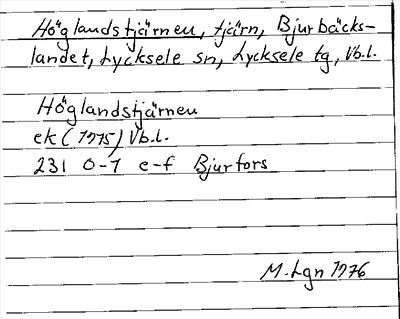 Höglandstjärnen, tjärn, Bjurbäcks-
landet, Lycksele sn, Lycksele tg, Vb.l.
Höglandstjärnen
ek (1975) Vb.l.
231 0-1 e-f Bjurfors
M. Lgn 1976